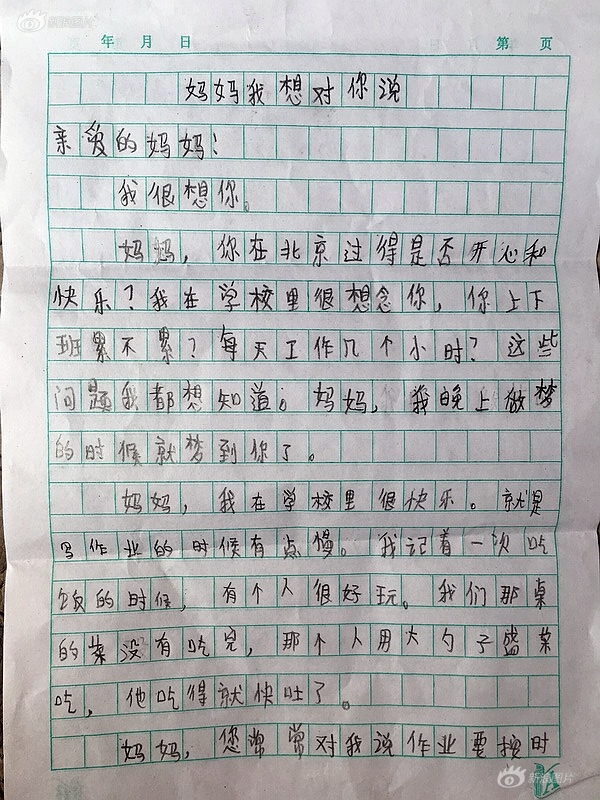 新浪图片
年 月 日 第 页
妈妈我想对你说
亲爱的妈妈！
我很想你。
妈妈，你在北京过得是否开心和
快乐？我在学校里很想念你，你上下
班累不累？每天工作几个小时？这些
问题我都想知道。妈妈，我晚上做梦
的时候就梦到你了。
妈妈，我在学校里很快乐。就是
写作业的时候有点慢。我记着一次吃
饭的时候，有个人很好玩。我们那桌
的菜没有吃完，那个人用大勺子盛菜
吃，他吃得就快吐了。
妈妈，您常常对我说作业要按时
新浪图片